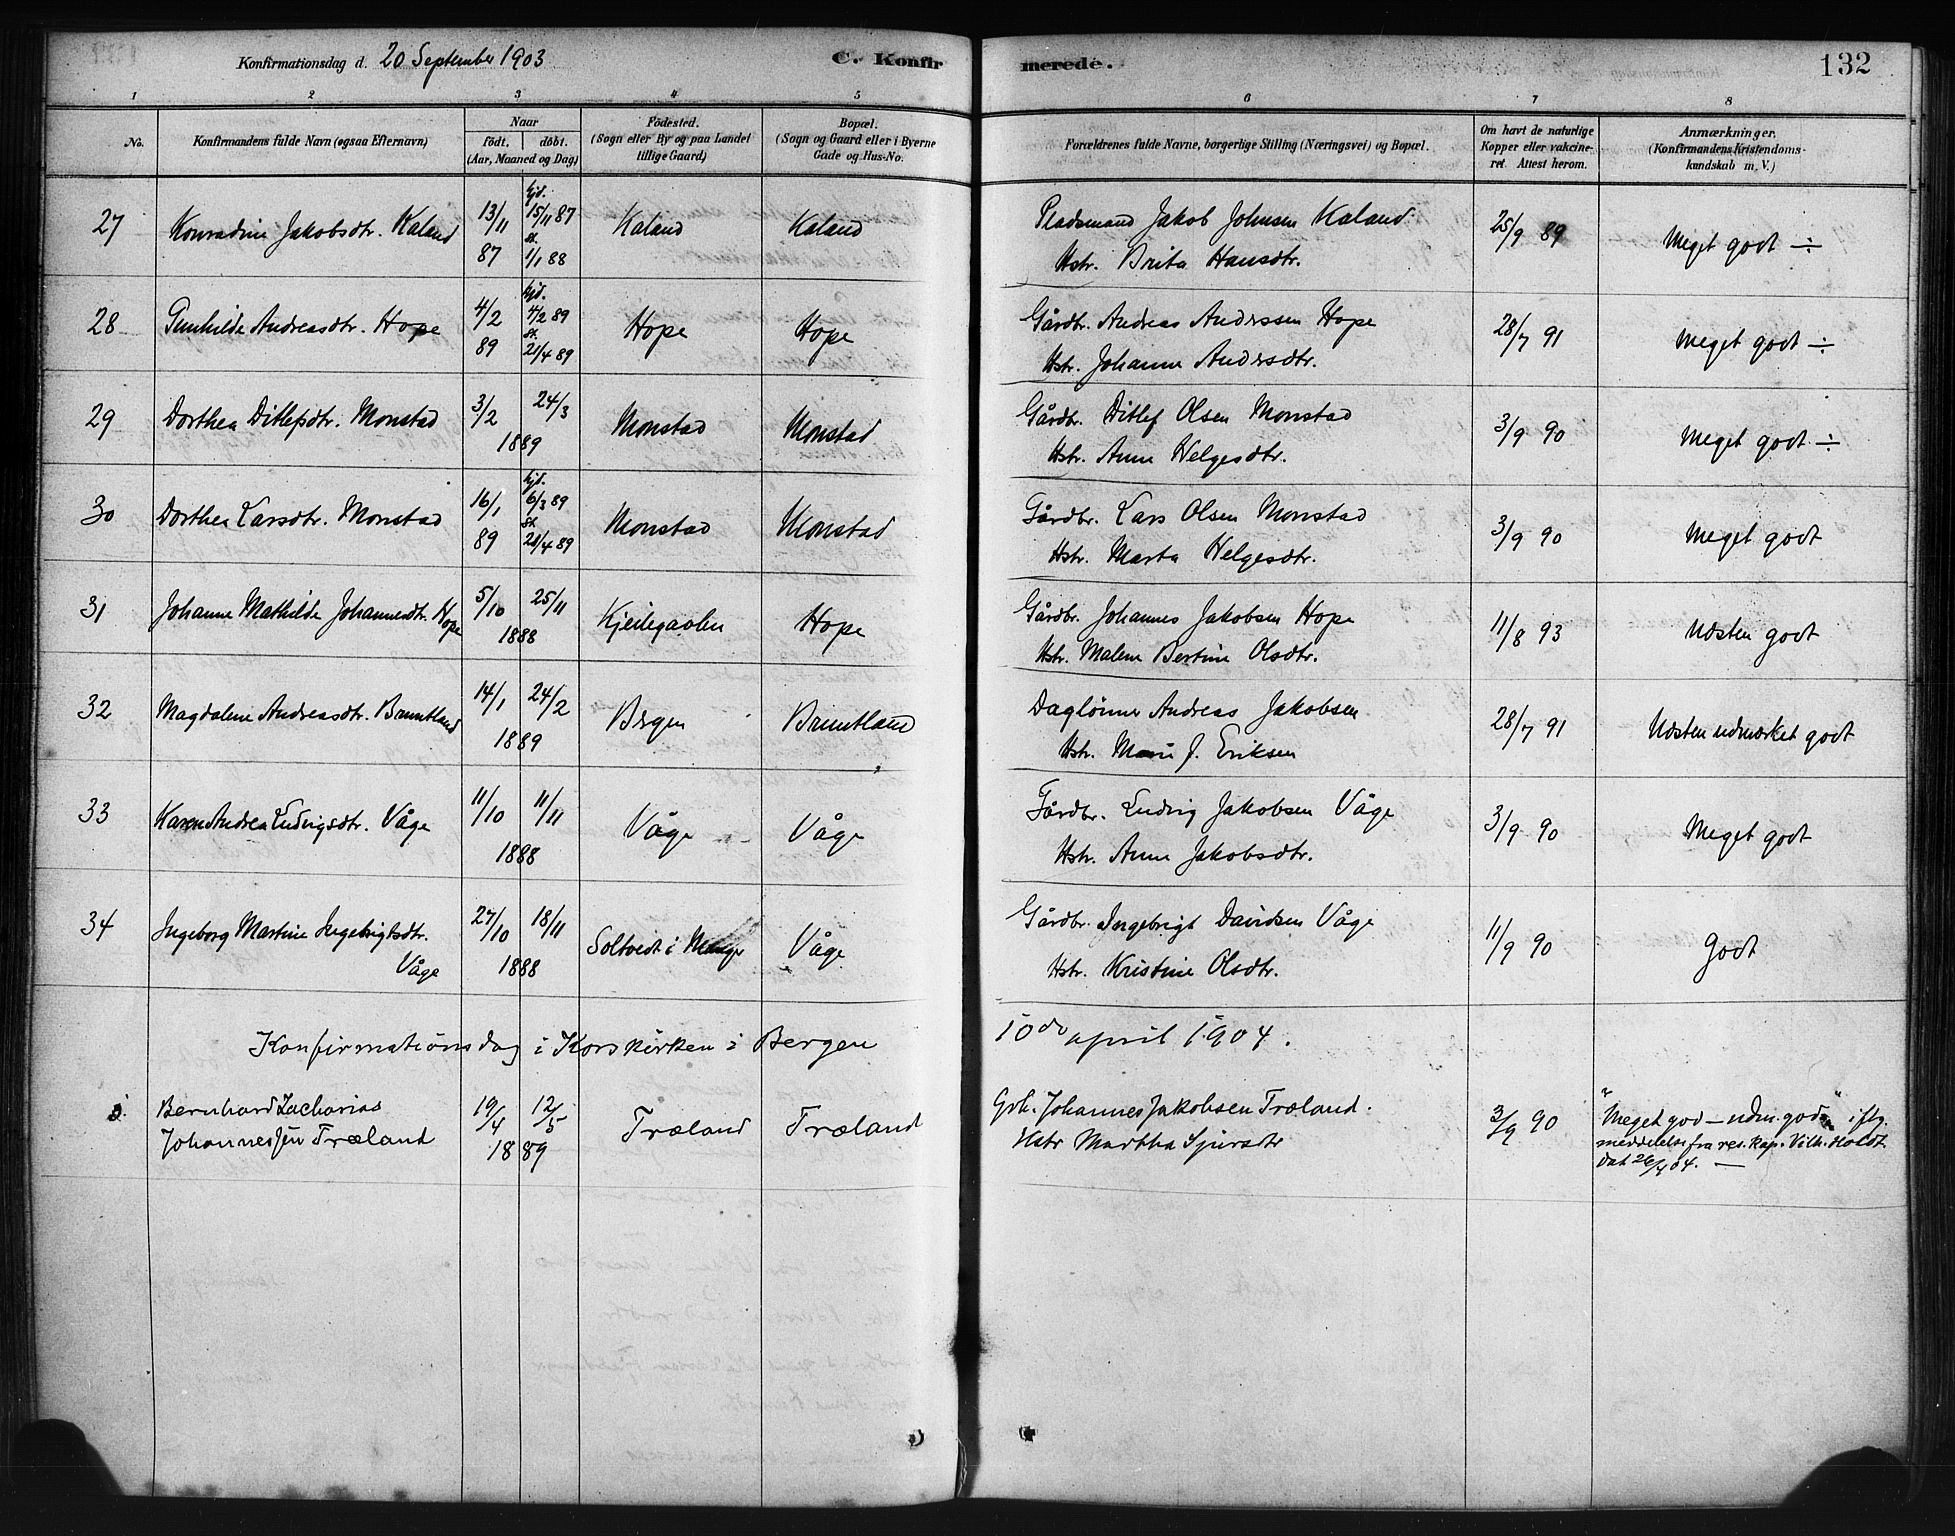 Konfirmationsdag d. 20 September 1903 C. Konfirmerede. 132
1 2 3 4 5 6 7 8
No. Konfirmandens fulde Navn (ogsaa Efternavn) Naar født. døbt. (Aar, Maaned og Dag) Fødested. (Sogn eller By og paa Landet tillige Gaard) Bopæl. (Sogn og Gaard eller i Byerne Gade og Hus-No. Forældrenes fulde Navne, borgerlige Stilling (Næringsvei) og Bopæl. Om havt de naturlige Kopper eller vakcineret. Attest herom. Anmærkninger. (Konfirmandens Kristendomskundskab m. V.)
27 Konradine Jakobsdtr. Kaland 13/11 87 hjd. 15/11 87 st. 1/1 88 Kaland Kaland Pladsmand Jakob Johnsen Kaland 25/9 89 Meget godt ÷
Hstr. Brita Hansdtr.
28 Gunhilde Andreasdtr. Hope 4/2 89 hjd. 4/2 89 st. 21/4 89 Hope Hope Gårdbr. Andreas Anderssen Hope 28/7 91 Meget godt ÷
Hstr. Johanne Andersdtr.
29 Dorthea Ditlefsdtr. Monstad 3/2 24/3 1889 Monstad Monstad Gårdbr. Ditlef Olsen Monstad 3/9 90 Meget godt ÷
Hstr. Anne Helgesdtr.
30 Dorthea Larsdtr. Monstad 16/1 89 hjd. 6/3 89 st. 21/4 89 Monstad Monstad Gårdbr. Lars Olsen Monstad 3/9 90 Meget godt
Hstr. Marta Helgesdtr.
31 Johanne Mathilde Johannesdtr. Hope 5/10 25/11 1888 Kjeilegavlen Hope Gårdbr. Johannes Jakobsen Hope 11/8 93 Næsten godt
Hstr. Malene Bertine Olsdtr.
32 Magdalene Andreasdtr. Bruntland 14/1 24/2 1889 Bergen Bruntland Daglønner Andreas Jakobsen 28/7 91 Næsten udmærket godt
Hstr. Marie J. Eriksen
33 Karen Andrea Ludvigsdtr. Våge 11/10 11/11 1888 Våge Våge Gårdbr. Ludvig Jakobsen Våge 3/9 90 Meget godt
Hstr. Anne Jakobsdtr.
34 Ingeborg Martine Ingebrigtsdtr. Våge 27/10 18/11 1888 Soltvedt i Manger Våge Gårdbr. Ingebrigt Davidsen Våge 11/9 90 Godt
Hstr. Kristine Olsdtr.
Konfirmationsdag i Korskirken i Bergen 10de april 1904.
Bernhard Zacharias Johannesen Træland 19/4 12/5 1889 Træland Træland Grb. Johannes Jakobsen Træland 3/9 90 "Meget god – udm. god" iflg.
Hstr Martha Sjursdtr meddelelse fra res. kap. Vilh. Holdt
dat 26/4 04. —